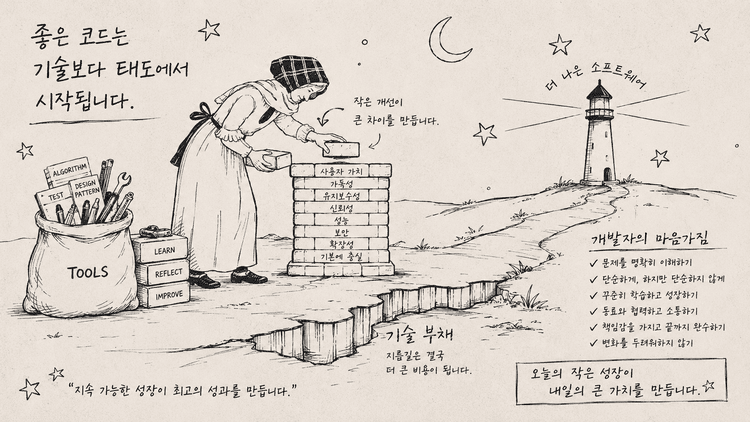 좋은 코드는
기술보다 태도에서
시작됩니다.
작은 개선이
큰 차이를 만듭니다.
더 나은 소프트웨어
ALGORITHM
TEST
DESIGN
PATTERN
TOOLS
LEARN
REFLECT
IMPROVE
사용자 가치
가독성
유지보수성
신뢰성
성능
보안
확장성
기본에 충실
개발자의 마음가짐
✓ 문제를 명확히 이해하기
✓ 단순하게, 하지만 단순하지 않게
✓ 꾸준히 학습하고 성장하기
✓ 동료와 협력하고 소통하기
✓ 책임감을 가지고 끝까지 완수하기
✓ 변화를 두려워하지 않기
기술 부채
지름길은 결국
더 큰 비용이 됩니다.
"지속 가능한 성장이 최고의 성과를 만듭니다."
오늘의 작은 성장이
내일의 큰 가치를 만듭니다.